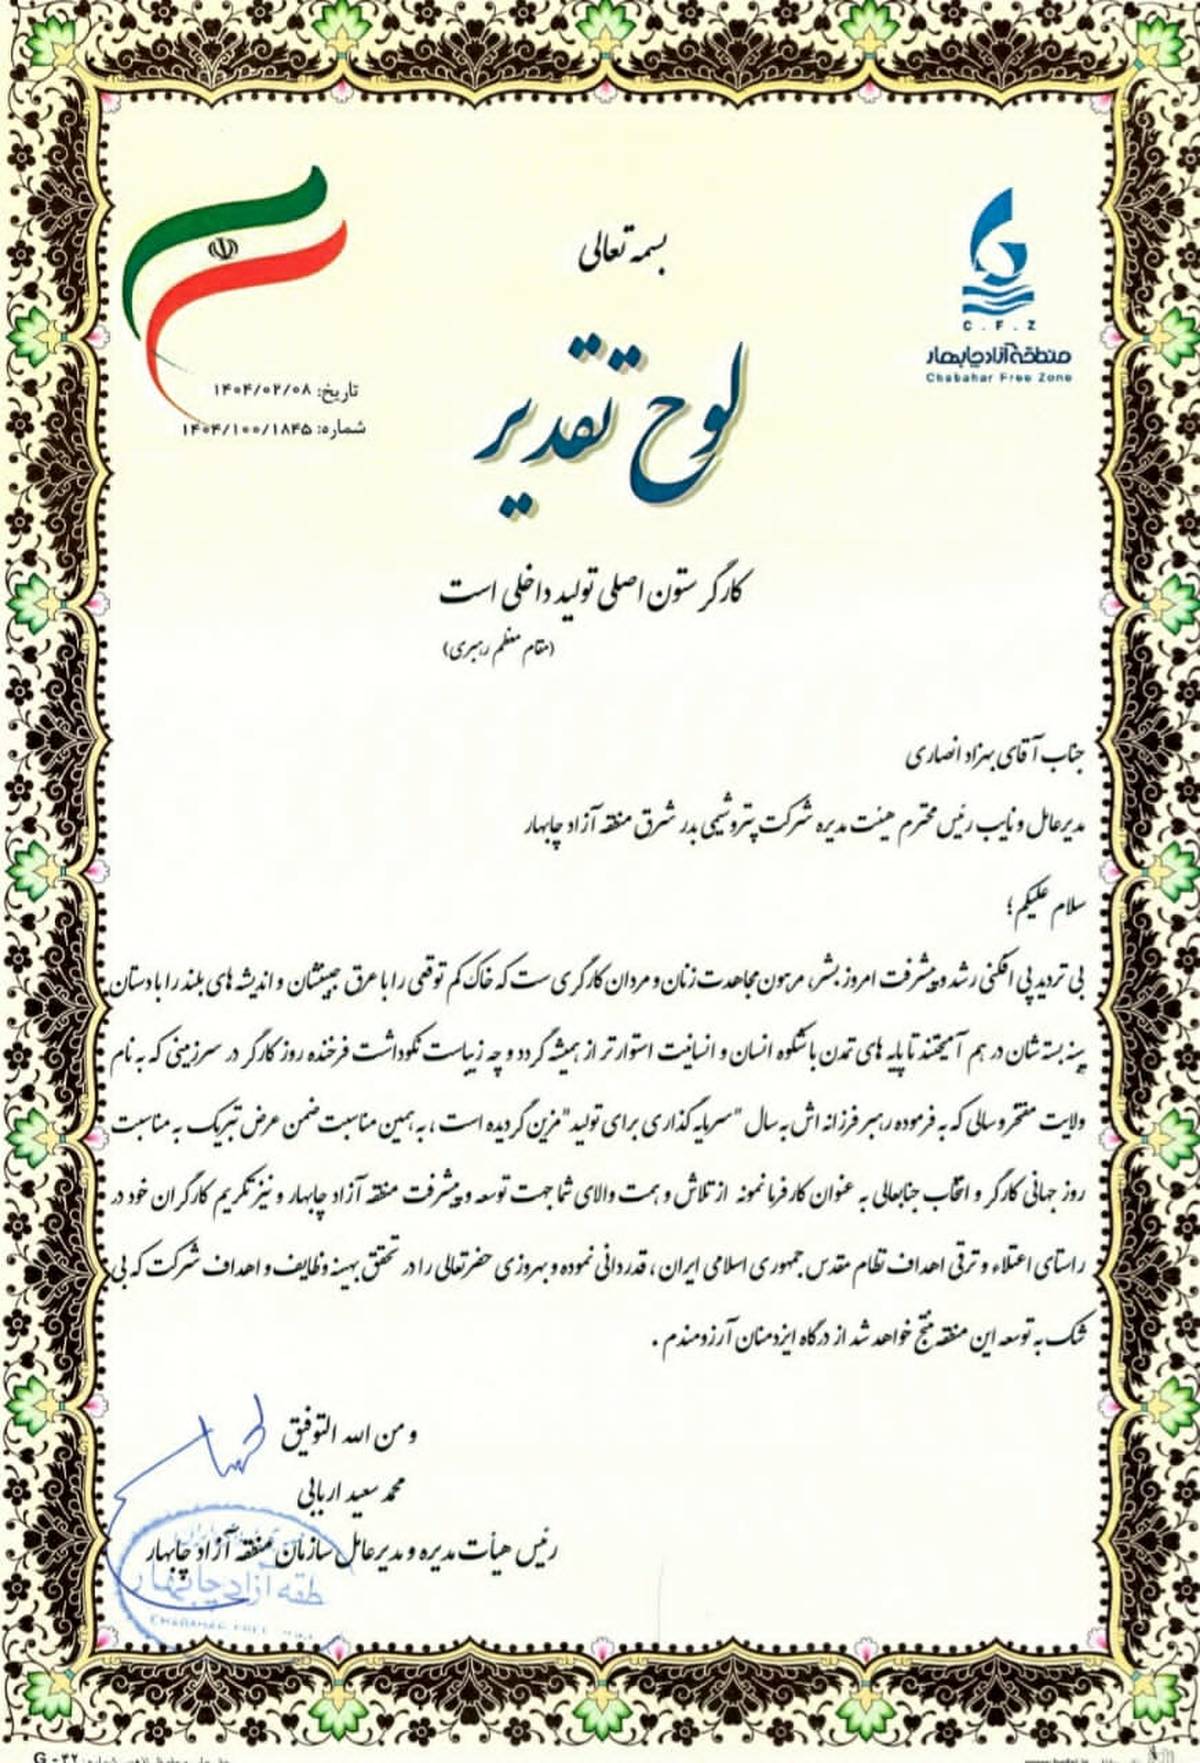 بسمه تعالی
C . F . Z
منطقه آزاد چابهار
Chabahar Free Zone
تاریخ: ۱۴۰۴/۰۲/۰۸
شماره: ۱۴۰۴/۱۰۰/۱۸۴۵
لوح تقدیر
کارگر ستون اصلی تولید داخلی است
(مقام معظم رهبری)
جناب آقای بهزاد انصاری
مدیرعامل و نایب رئیس محترم هیئت مدیره شرکت پتروشیمی بدر شرق منطقه آزاد چابهار
سلام علیکم؛
بی تردید پی افکنی رشد و پیشرفت امروز بشر، مرهون مجاهدت زنان و مردان کارگری ست که خاک کم توقعی را با عرق جبینشان و اندیشه های بلند را با دستان
پینه بسته شان در هم آمیختند تا پایه های تمدن باشکوه انسان و انسانیت استوارتر از همیشه گردد و چه زیباست نکوداشت فرخنده روز کارگر در سرزمینی که به نام
ولایت مفتخر و سالی که به فرموده رهبر فرزانه اش به سال "سرمایه گذاری برای تولید" مزین گردیده است، به همین مناسبت ضمن عرض تبریک به مناسبت
روز جهانی کارگر و انتخاب جنابعالی به عنوان کارفرما نمونه از تلاش و همت والای شما جهت توسعه و پیشرفت منطقه آزاد چابهار و نیز تکریم کارگران خود در
راستای اعتلاء و ترقی اهداف نظام مقدس جمهوری اسلامی ایران، قدردانی نموده و بهروزی حضرتعالی را در تحقق بهینه وظایف و اهداف شرکت که بی
شک به توسعه این منطقه منتج خواهد شد از درگاه ایزد منان آرزومندم.
و من الله التوفیق
محمد سعید اربابی
رئیس هیأت مدیره و مدیرعامل سازمان منطقه آزاد چابهار
G - ۳۲